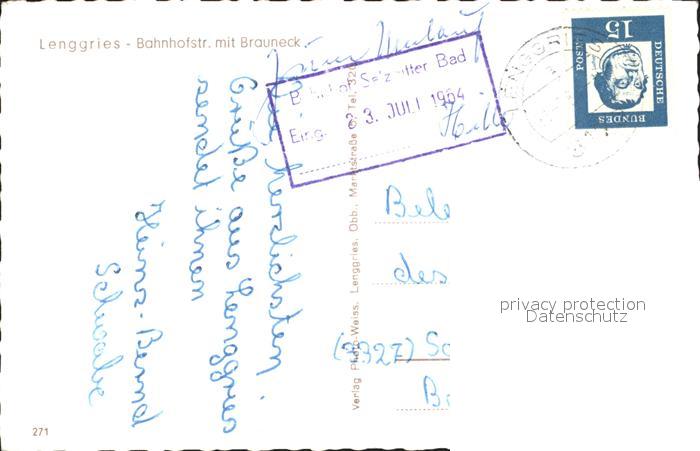 Lenggries - Bahnhofstr. mit Brauneck
Eing. 3. JULI 1964
15
DEUTSCHE
BUNDES
POST
LENGGRIES
Die herzlichsten
Grüße aus Lenggries
sendet ihnen
Heinz-Bernd
Schwabe
Verlag Photo-Weiss, Lenggries, Obb., Marktstraße Tel. 320
des
(3327) Sa
privacy protection
Datenschutz
271